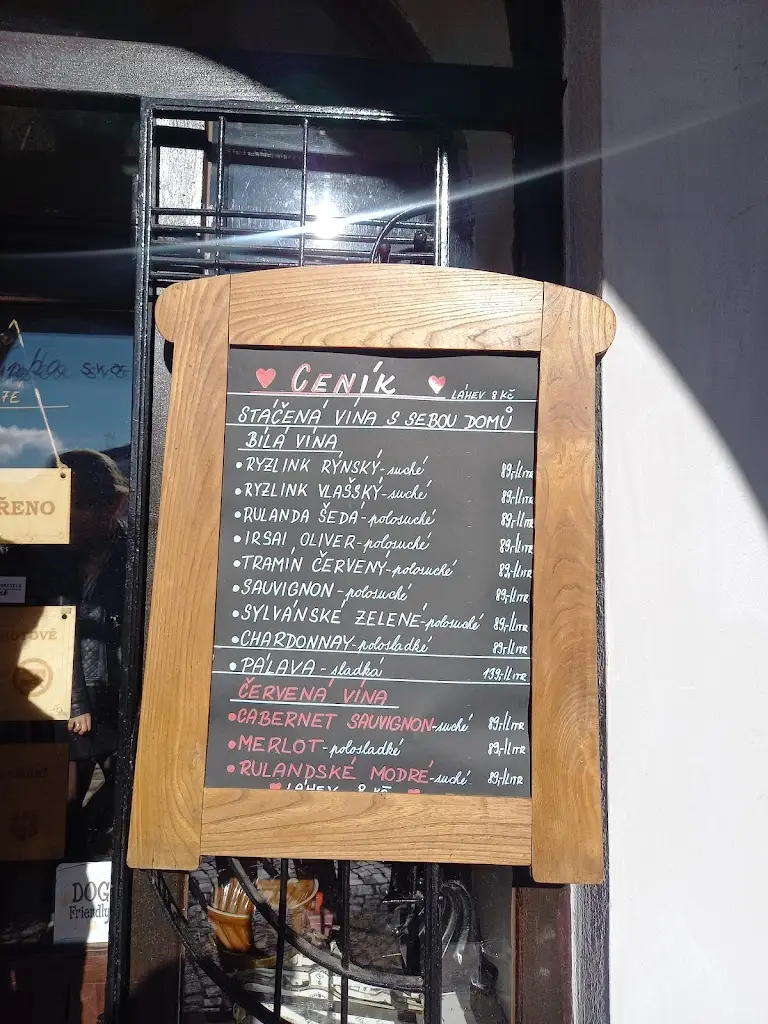 CENÍK
LÁHEV 8 KČ
STÁČENÁ VÍNA S SEBOU DOMŮ
BÍLÁ VÍNA
• RYZLINK RÝNSKÝ - suché 89,-/LITR
• RYZLINK VLAŠSKÝ - suché 89,-/LITR
• RULANDA ŠEDÁ - polosuché 89,-/LITR
• IRSAI OLIVER - polosuché 89,-/LITR
• TRAMÍN ČERVENÝ - polosuché 89,-/LITR
• SAUVIGNON - polosuché 89,-/LITR
• SYLVÁNSKÉ ZELENÉ - polosuché 89,-/LITR
• CHARDONNAY - polosladké 89,-/LITR
• PÁLAVA - sladká 139,-/LITR
ČERVENÁ VÍNA
• CABERNET SAUVIGNON - suché 89,-/LITR
• MERLOT - polosladké 89,-/LITR
• RULANDSKÉ MODRÉ - suché 89,-/LITR
LÁHEV 8 KČ
ŘENO
DOG
Friendly